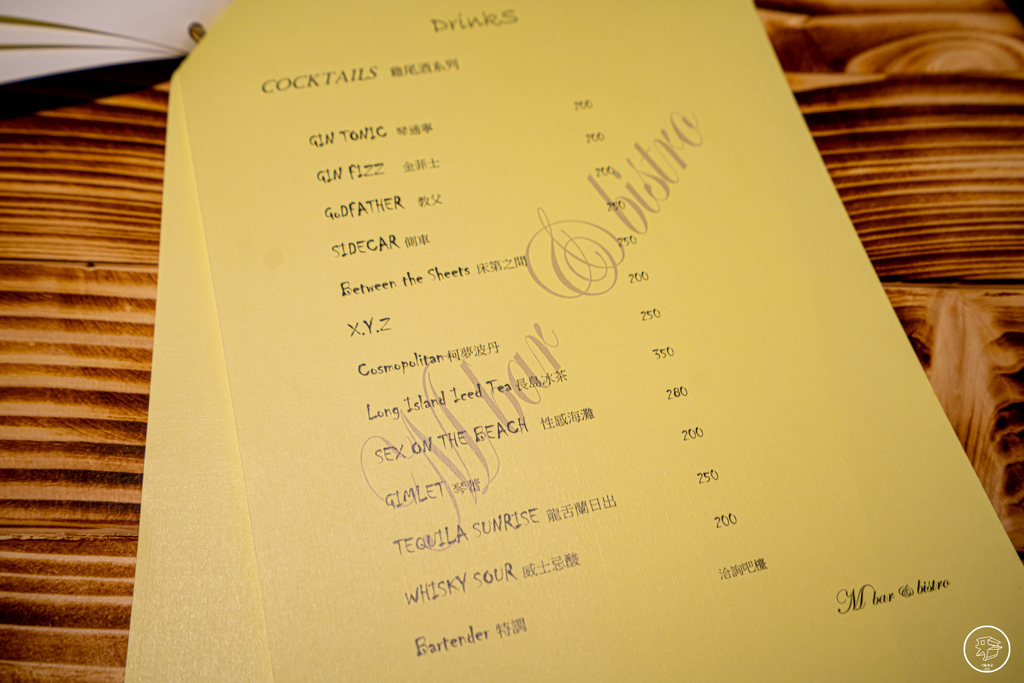 Drinks
COCKTAILS 雞尾酒系列
GIN TONIC 琴通寧 200
GIN FIZZ 金菲士 200
GoDFATHER 教父 200
SIDECAR 側車 250
Between the Sheets 床第之間 250
X.Y.Z 200
Cosmopolitan 柯夢波丹 250
Long Island Iced Tea 長島冰茶 350
SEX ON THE BEACH 性感海灘 280
GIMLET 琴蕾 200
TEQUILA SUNRISE 龍舌蘭日出 250
WHISKY SOUR 威士忌酸 200
Bartender 特調 洽詢吧檯
M bar & bistro
M bar & bistro